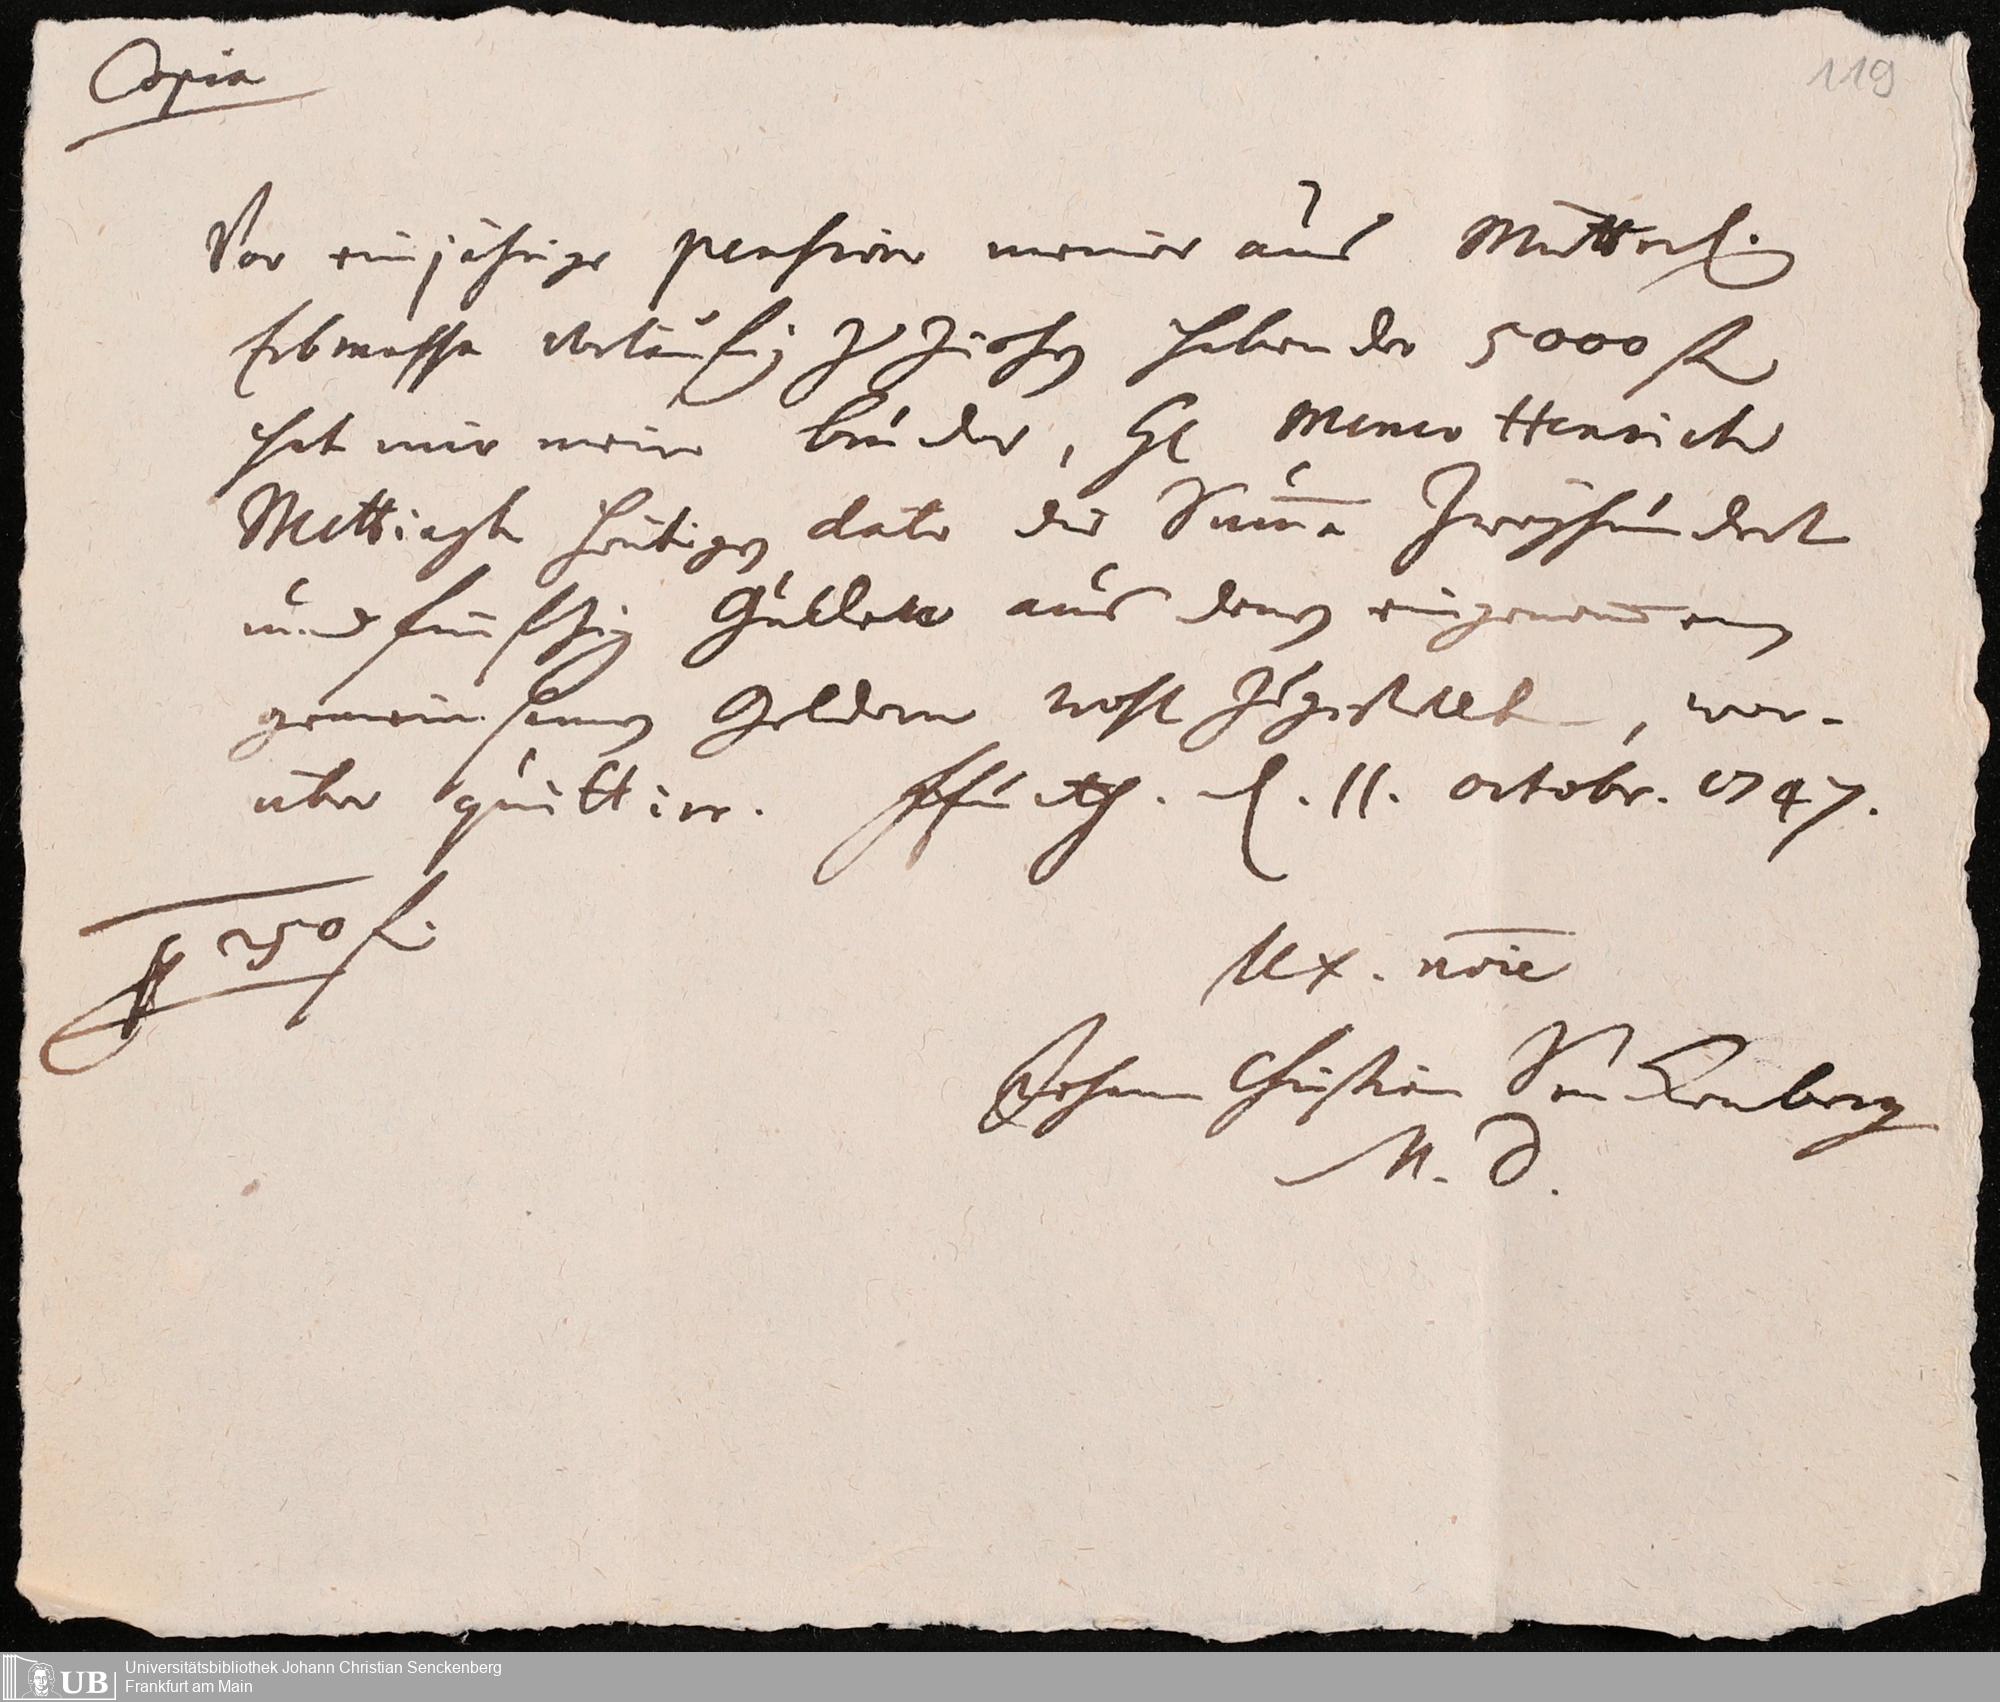 Copia
119
Vor einjährige pension meiner aus Mütterl.
Erbmassa vorläufig zu ziehen habender 5000 fl
hat mir mein bruder, H. Meneo Henrich
Mettingh heutigen dato die Summa Zweyhundert
und fünfzig Gulden aus denen eingenommenen
gemeinsamen Geldern wohl zugestellt, wor-
über quittire. Ffurth. d. 11. octobr. 1747.
250 fl.
Ux. noie
Johann Christian Senckenberg
M. D.
UB
Universitätsbibliothek Johann Christian Senckenberg
Frankfurt am Main